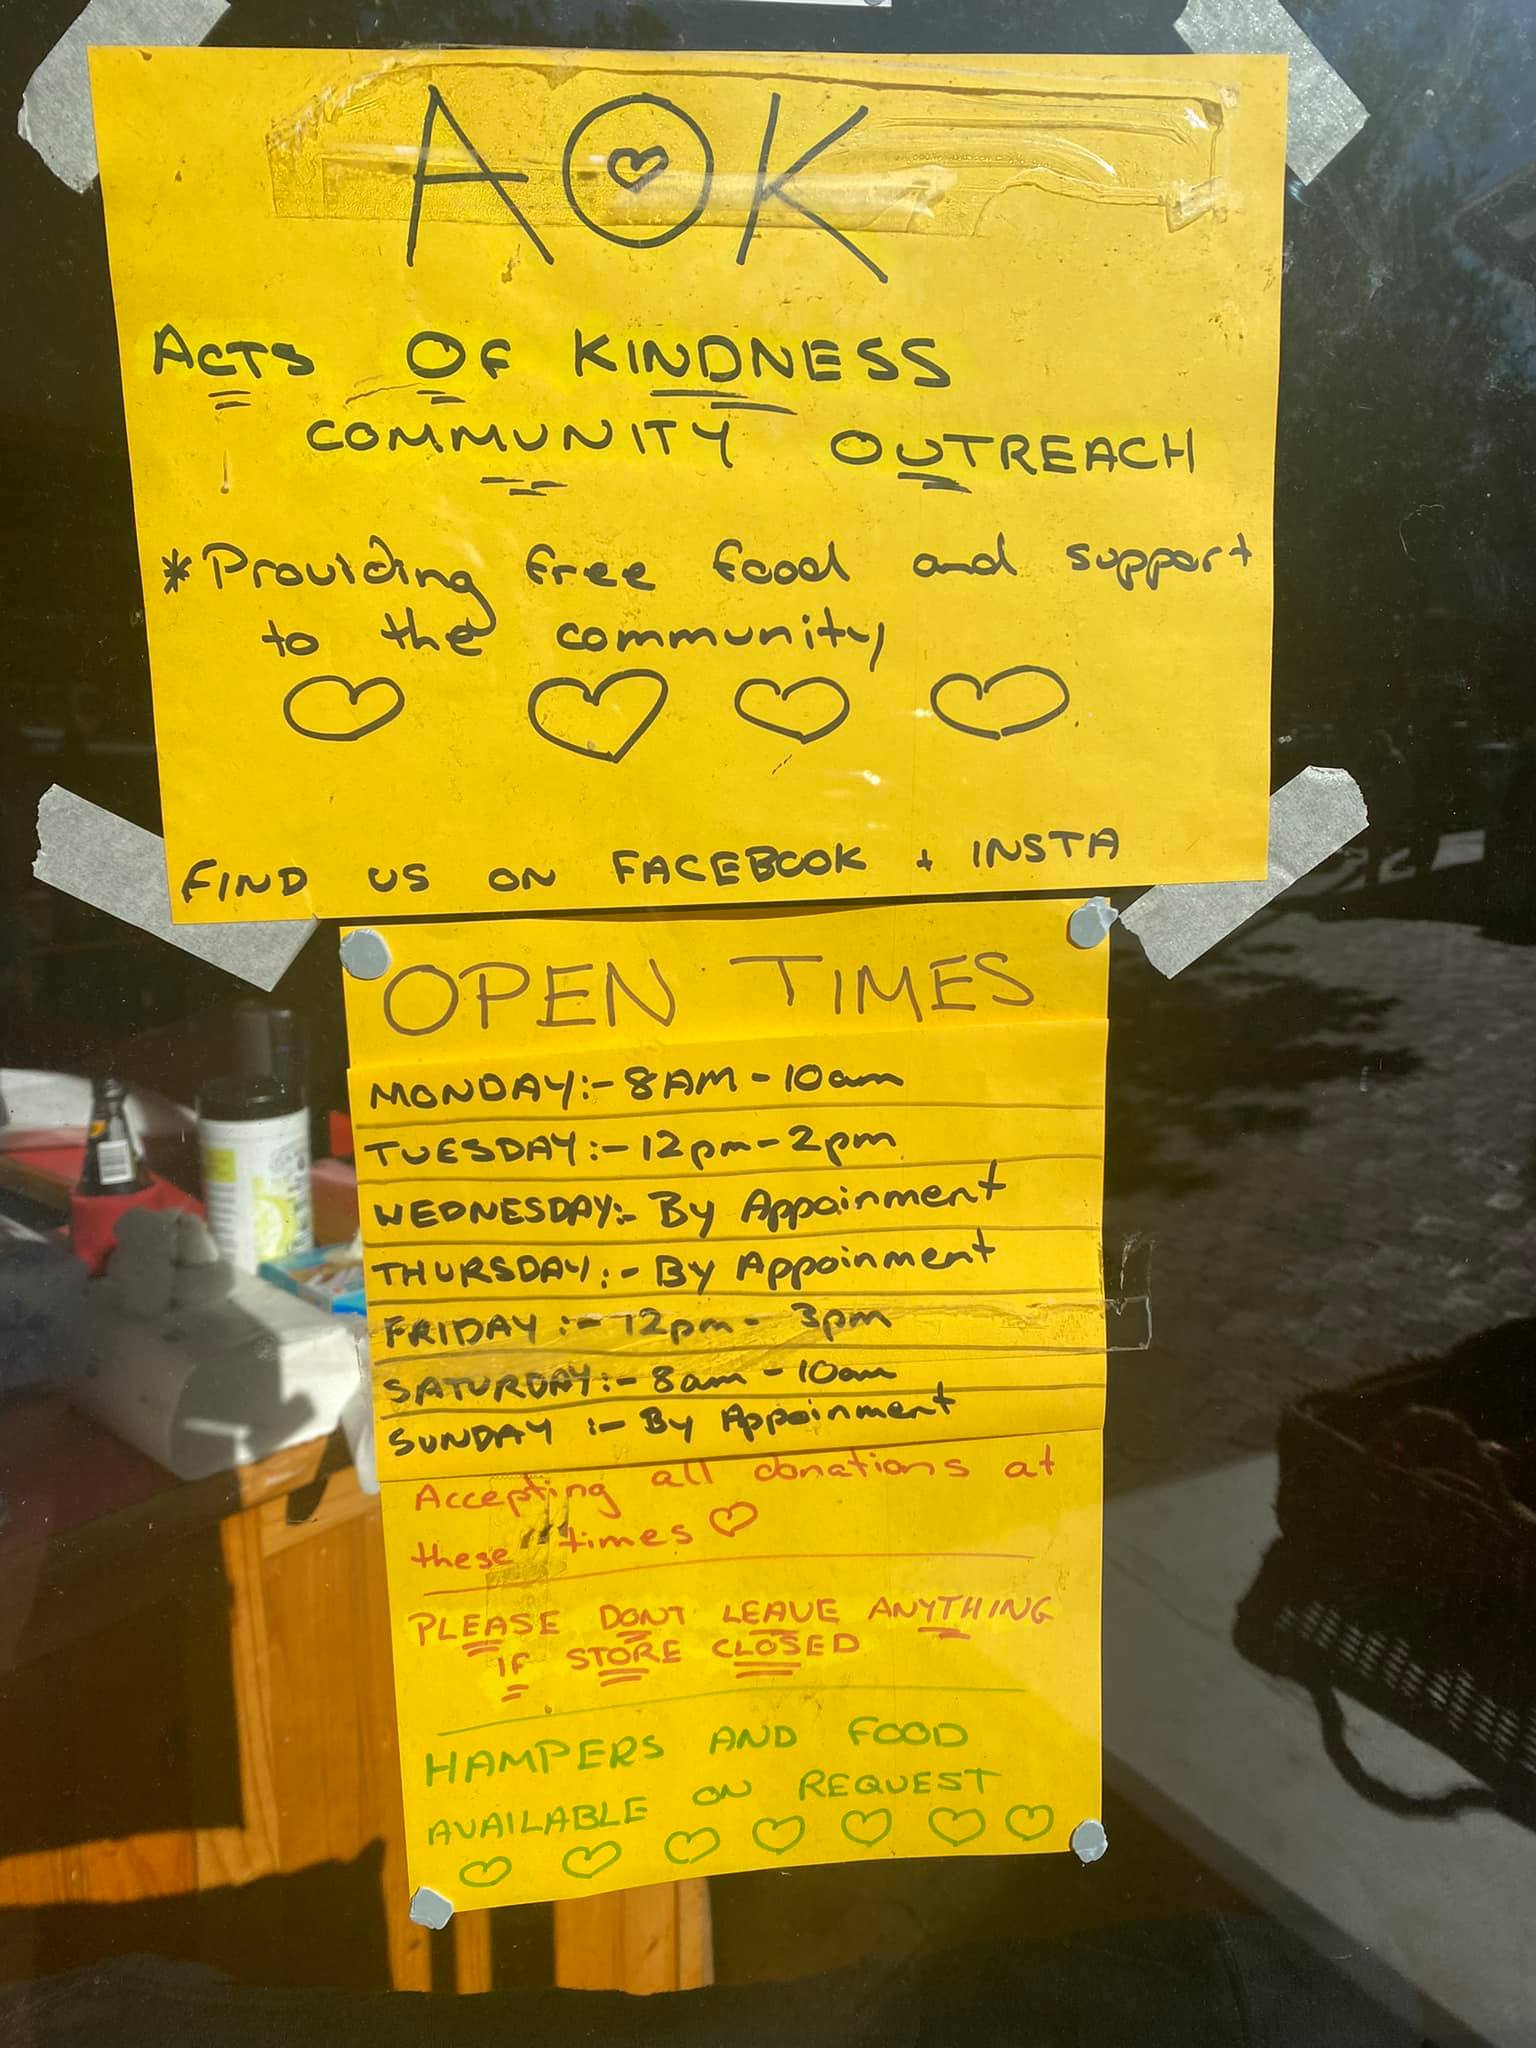 AOK
ACTS OF KINDNESS
COMMUNITY OUTREACH
*Providing free food and support
to the community
FIND US ON FACEBOOK + INSTA
OPEN TIMES
MONDAY:- 8AM - 10am
TUESDAY:- 12pm - 2pm
WEDNESDAY:- By Appoinment
THURSDAY:- By Appoinment
FRIDAY:- 12pm - 3pm
SATURDAY:- 8am - 10am
SUNDAY :- By Appoinment
Accepting all donations at
these times
PLEASE DONT LEAVE ANYTHING
IF STORE CLOSED
HAMPERS AND FOOD
AVAILABLE ON REQUEST